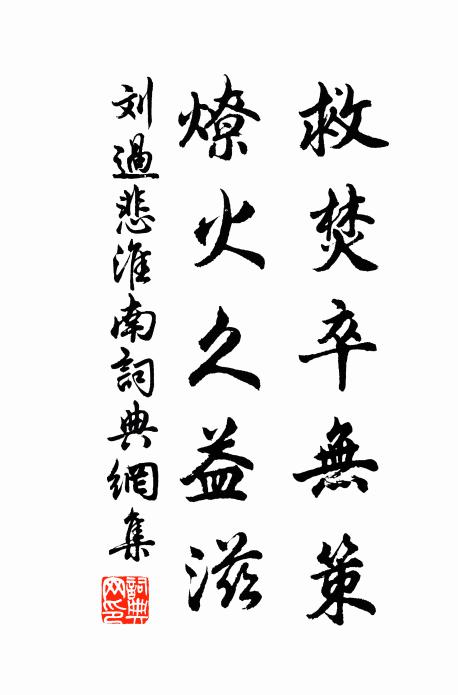 救焚卒無策
燎火久益滋
刘過悲淮南詞典網集
詞典网印